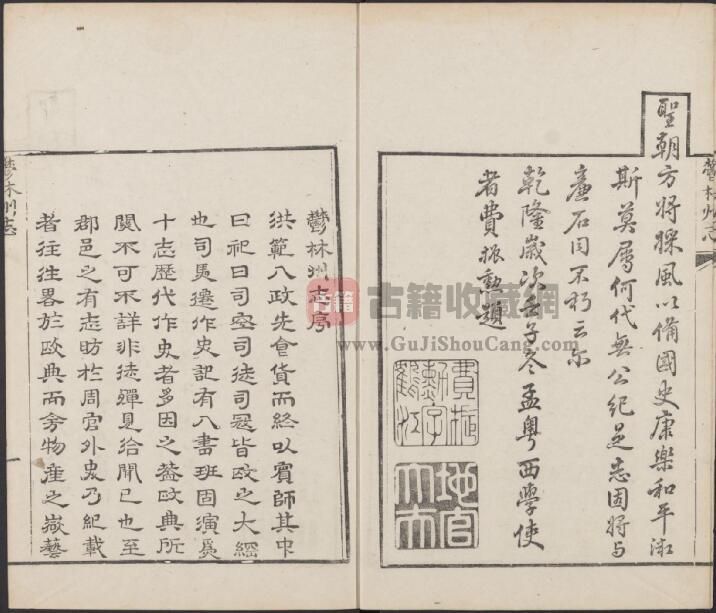 聖朝方將採風以備國史康樂和平
斯莫屬何代無公紀是志固將與
廉石同不朽云尔
乾隆歲次壬子冬孟粤西學使
者費振勳題
費振勳字鶴江
地官大夫
鬱林州志
鬱林州志序
洪範八政先食貨而終以賓師其中
曰祀曰司空司徒司寇皆政之大綱
也司馬遷作史記有八書班固演爲
十志歷代作史者多因之蓋政典所
關不可不詳非徒殫見洽聞已也至
郡邑之有志昉於周官外史乃紀載
者往往畧於政典而旁物產之
鬱林州志
古籍收藏網
www.GuJiShouCang.com